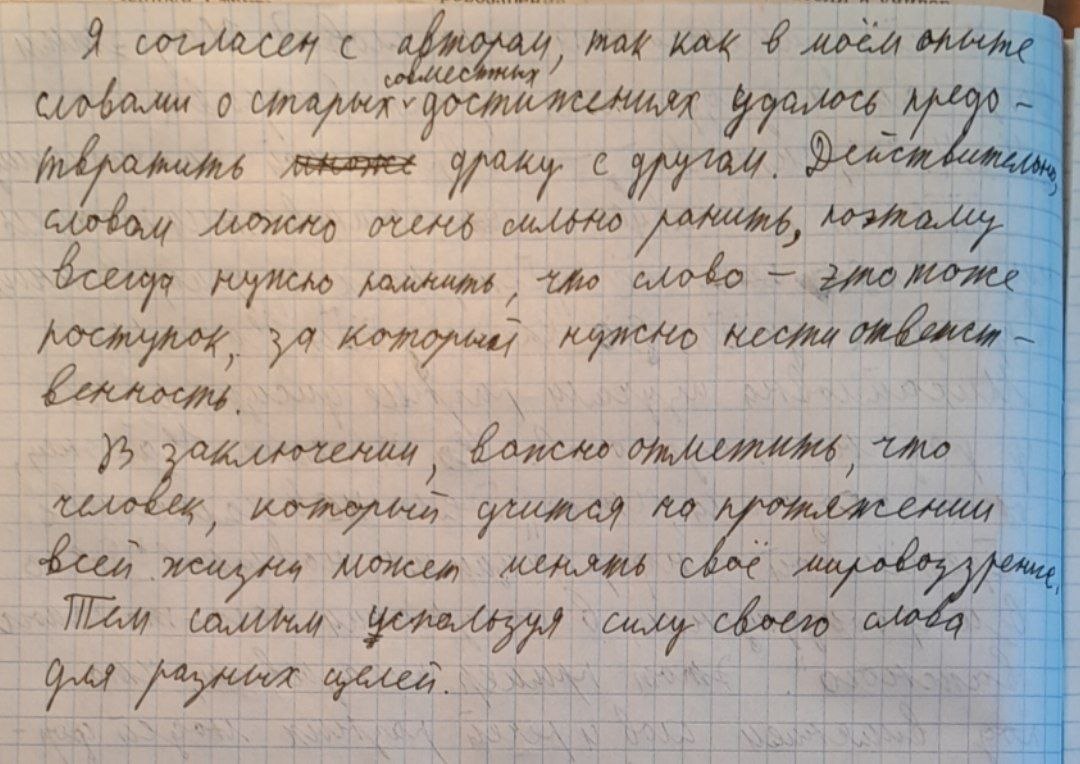 Я согласен с автором, так как в моём опыте
словами о старых совместных достижениях удалось предо-
твратить драку с другом. Действительно,
словом можно очень сильно ранить, поэтому
всегда нужно помнить, что слово – это тоже
поступок, за который нужно нести ответст-
венность.
В заключении, важно отметить, что
человек, который учится на протяжении
всей жизни может менять своё мировоззрение.
Тем самым используя силу своего слова
для разных целей.